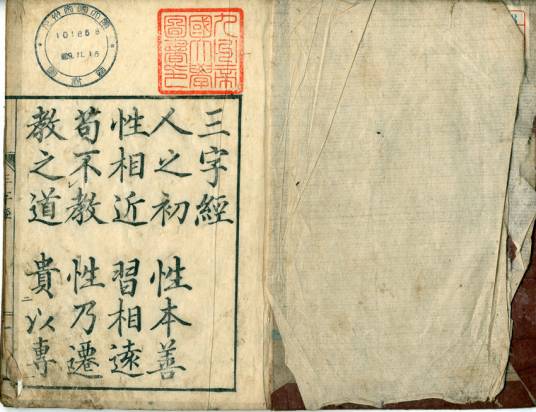 三字經
人之初　性本善
性相近　習相遠
苟不教　性乃遷
教之道　貴以專
九州帝
國大學
圖書印
101868